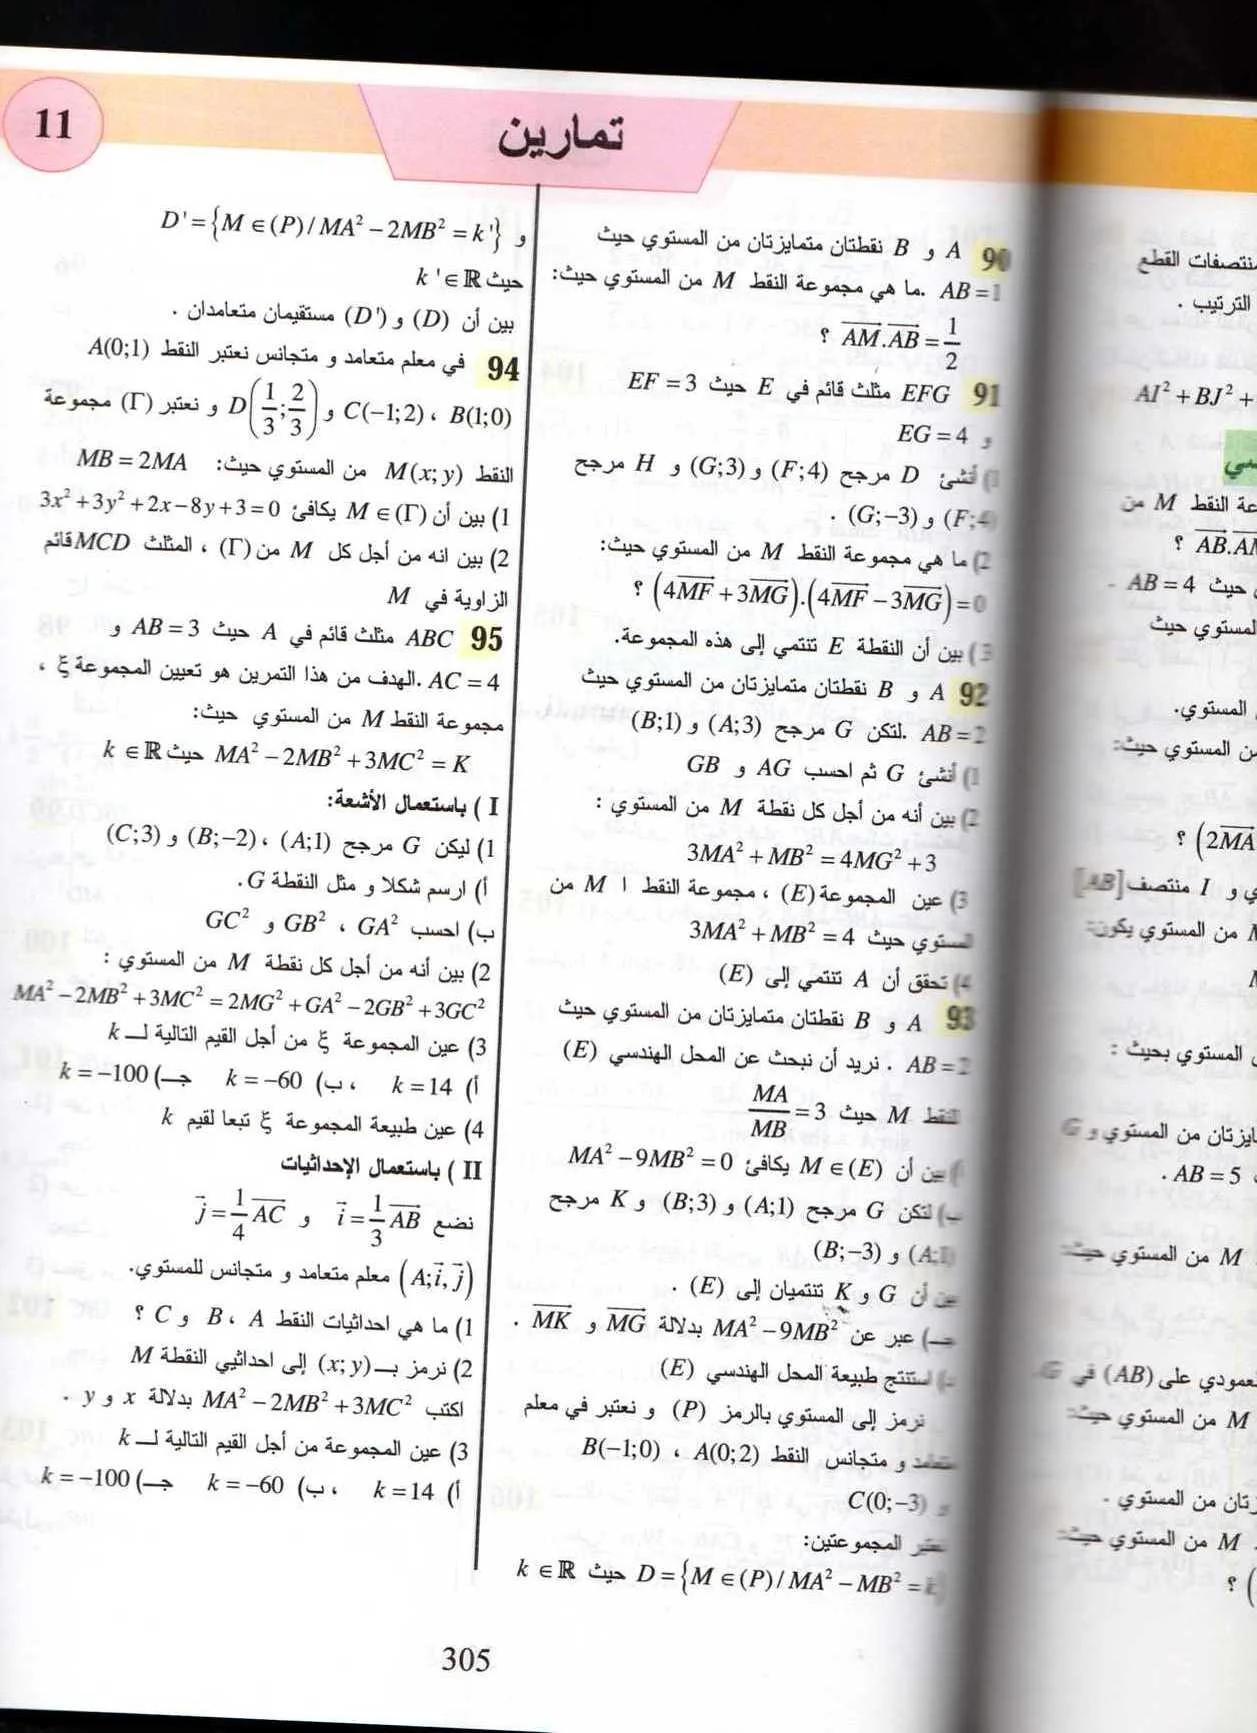 11
تمارين
90 A و B نقطتان متمايزتان من المستوي حيث
AB=1 .ما هي مجموعة النقط M من المستوي حيث:
$\overrightarrow{AM}.\overrightarrow{AB}=\frac{1}{2}$ ؟
91 EFG مثلث قائم في E حيث EF = 3
و EG = 4
1) أنشئ D مرجح (F;4) و (G;3) و H مرجح
(F;4) و (G;−3) .
2) ما هي مجموعة النقط M من المستوي حيث:
$(4\overrightarrow{MF}+3\overrightarrow{MG}).(4\overrightarrow{MF}-3\overrightarrow{MG})=0$ ؟
3) بين أن النقطة E تنتمي إلى هذه المجموعة.
92 A و B نقطتان متمايزتان من المستوي حيث
AB=2 .لتكن G مرجح (A;3) و (B;1)
1) أنشئ G ثم احسب AG و GB
2) بين أنه من أجل كل نقطة M من المستوي :
3MA² + MB² = 4MG² + 3
3) عين المجموعة (E) ، مجموعة النقط ا M من
المستوي حيث 3MA² + MB² = 4
4) تحقق أن A تنتمي إلى (E)
93 A و B نقطتان متمايزتان من المستوي حيث
AB=2 . نريد أن نبحث عن المحل الهندسي (E)
للنقط M حيث $\frac{MA}{MB}=3$
أ) بين أن M ∈ (E) يكافئ MA² − 9MB² = 0
ب) لتكن G مرجح (A;1) و (B;3) و K مرجح
(A;1) و (B;−3)
بين أن G و K تنتميان إلى (E) .
جـ) عبر عن MA² − 9MB² بدلالة $\overrightarrow{MG}$ و $\overrightarrow{MK}$ .
د) استنتج طبيعة المحل الهندسي (E)
نرمز إلى المستوي بالرمز (P) و نعتبر في معلم
متعامد و متجانس النقط A(0;2) ، B(−1;0)
و C(0;−3)
نعتبر المجموعتين:
D = {M ∈ (P) / MA² − MB² = k} حيث k ∈ ℝ
و D' = {M ∈ (P) / MA² − 2MB² = k'}
حيث k' ∈ ℝ
بين أن (D) و (D') مستقيمان متعامدان .
94 في معلم متعامد و متجانس نعتبر النقط A(0;1)
B(1;0) ، C(−1;2) و $D\left(\frac{1}{3};\frac{2}{3}\right)$ و نعتبر (Γ) مجموعة
النقط M(x;y) من المستوي حيث: MB = 2MA
1) بين أن M ∈ (Γ) يكافئ 3x² + 3y² + 2x − 8y + 3 = 0
2) بين انه من أجل كل M من (Γ) ، المثلث MCD قائم
الزاوية في M
95 ABC مثلث قائم في A حيث AB = 3 و
AC = 4 .الهدف من هذا التمرين هو تعيين المجموعة ξ ،
مجموعة النقط M من المستوي حيث:
MA² − 2MB² + 3MC² = K حيث k ∈ ℝ
I ) باستعمال الأشعة:
1) ليكن G مرجح (A;1) ، (B;−2) و (C;3)
أ) ارسم شكلا و مثل النقطة G.
ب) احسب GA² ، GB² و GC²
2) بين أنه من أجل كل نقطة M من المستوي :
MA² − 2MB² + 3MC² = 2MG² + GA² − 2GB² + 3GC²
3) عين المجموعة ξ من أجل القيم التالية لـ k
أ) k = 14 ، ب) k = −60 جـ) k = −100
4) عين طبيعة المجموعة ξ تبعا لقيم k
II ) باستعمال الإحداثيات
نضع $\vec{i}=\frac{1}{3}\overrightarrow{AB}$ و $\vec{j}=\frac{1}{4}\overrightarrow{AC}$
$(A;\vec{i},\vec{j})$ معلم متعامد و متجانس للمستوي.
1) ما هي احداثيات النقط A ، B و C ؟
2) نرمز بـ (x; y) إلى احداثيي النقطة M
اكتب MA² − 2MB² + 3MC² بدلالة x و y .
3) عين المجموعة من أجل القيم التالية لـ k
أ) k = 14 ، ب) k = −60 جـ) k = −100
305
منتصفات القطع
الترتيب .
AI² + BJ² +
عة النقط M من
حيث AB = 4 .
المستوي حيث
المستوي.
من المستوي حيث:
و I منتصف [AB]
M من المستوي يكون:
المستوي بحيث :
AB = 5 .
M من المستوي حيث:
(AB) في G.
M من المستوي حيث:
من المستوي .
M من المستوي حيث: